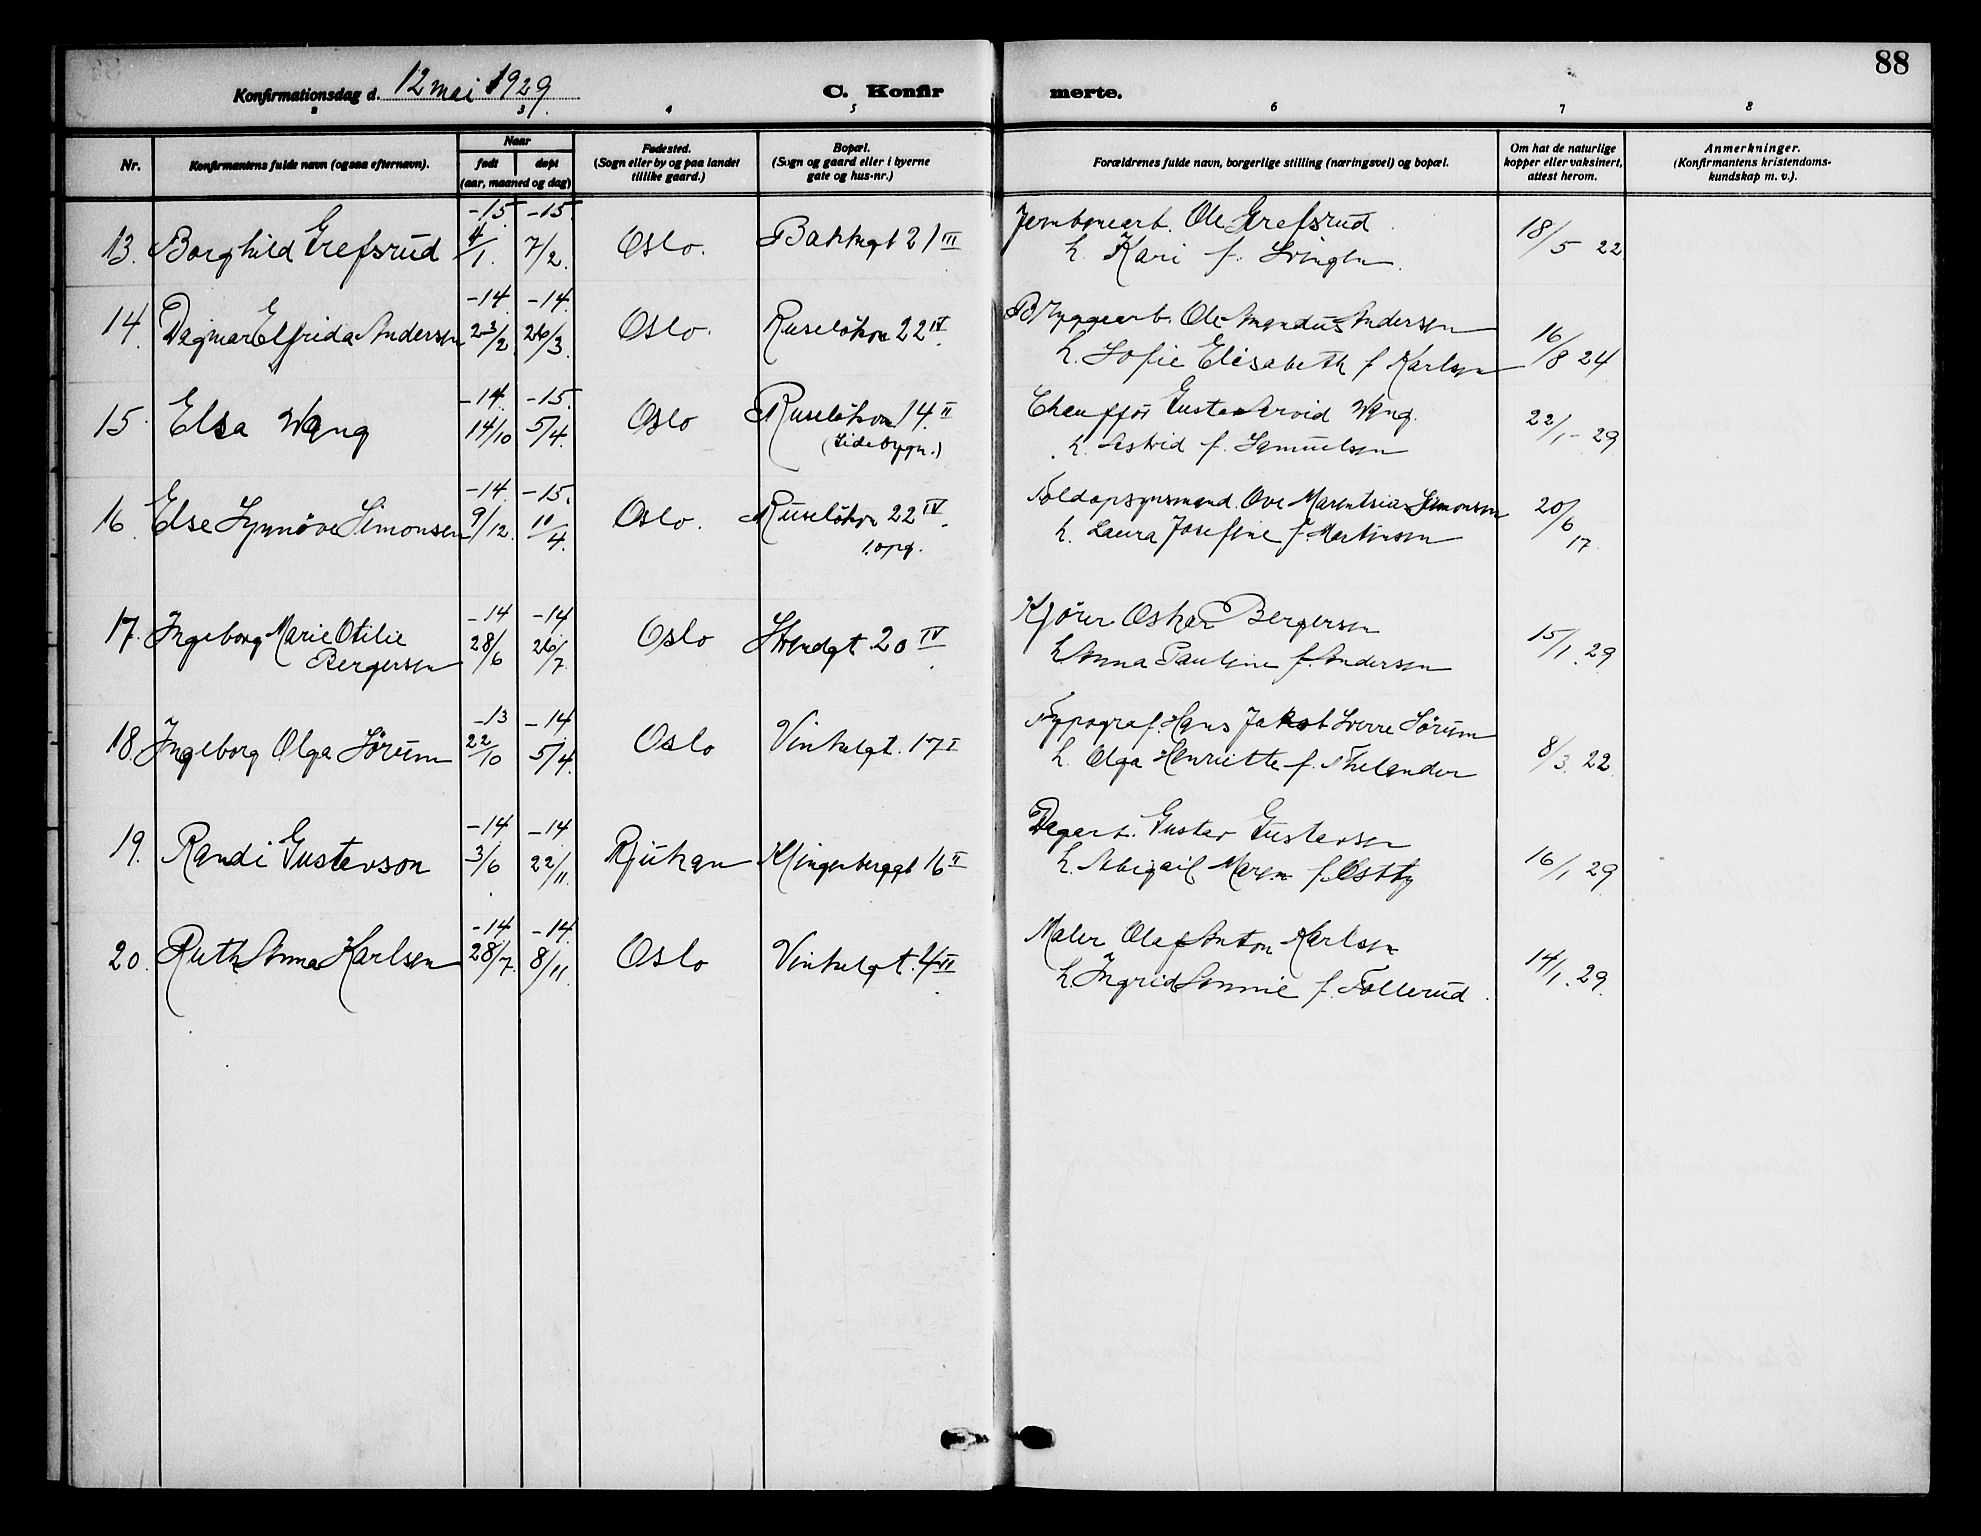 88
Konfirmationsdag d. 12 mai 1929.
C. Konfirmerte.
2 3 4 5 6 7 8
Nr.
Konfirmantens fulde navn (ogsaa efternavn).
Naar
født
døpt
(aar, maaned og dag)
Fødested.
(Sogn eller by og paa landet
tillike gaard.)
Bopæl.
(Sogn og gaard eller i byerne
gate og hus-nr.)
Forældrenes fulde navn, borgerlige stilling (næringsvei) og bopæl.
Om hat de naturlige
kopper eller vaksinert,
attest herom.
Anmerkninger.
(Konfirmantens kristendoms-
kundskap m. v.).
-15 -15
13. Borghild Grefsrud 4/1. 7/2. Oslo. Bakkegt 21 III Jernbanearb. Ole Grefsrud 18/5 22
h. Kari f. Svingen.
-14. -14.
14. Dagmar Elfrida Andersen 23/2 26/3. Oslo. Ruseløkvn 22 IV. Bryggearb. Ole Amandus Andersen 16/8 24
h. Sofie Elisabeth f Karlsen
-14. -15.
15. Elsa Wang 14/10 5/4. Oslo Ruseløkvn 14. II Chauffør Gustav Arvid Wang. 22/1 - 29
(Sidebygn.) h. Astrid f. Samuelsen
-14. -15.
16. Else Synnøve Simonsen 9/12. 11/4. Oslo. Ruseløkvn 22 IV. Toldopsynsmand. Ove Marentsius Simonsen 20/6 17.
1. opg. h. Laura Josefine f. Martinsen
-14 -14
17. Ingeborg Marie Otilie 28/6 26/7. Oslo Strandgt. 20 IV Kjører Oskar Bergersen 15/1. 29
Bergersen h Anna Pauline f. Andersen
-13 -14
18. Ingeborg Olga Sørum 22/10 5/4. Oslo Vinkelgt. 17 I Typograf. Hans Jakob Sverre Sørum 8/3. 22
h. Olga Henriette f. Thelander
-14 -14
19. Randi Gustavson 3/6 22/11. Rjukan Klingenberggt 16 II Dagarb. Gustav Gustavsen 16/1 29
h. Abigail Maren f. Østby
-14 -14.
20. Ruth Anna Karlsen 28/7. 8/11. Oslo Vinkelgt. 4 VI Maler Olaf Anton Karlsen 14/1. 29.
h. Ingrid f. Follerud